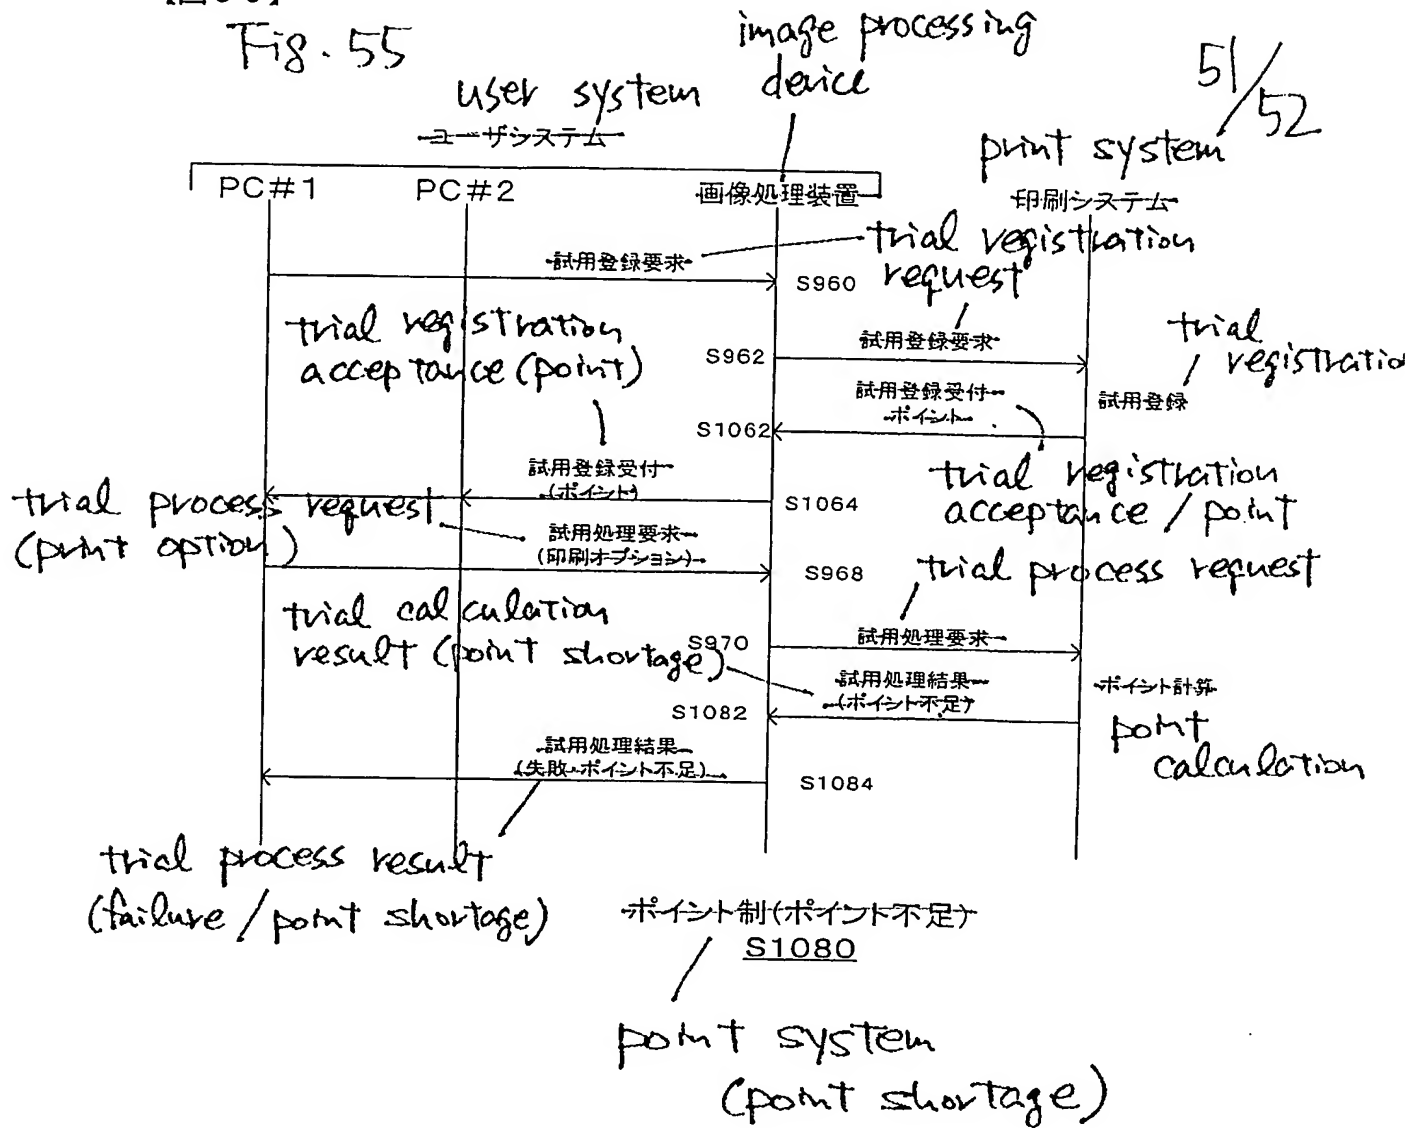 Fig. 55
image processing
device
51/52
user system
ユーザシステム
print system
PC#1
PC#2
画像処理装置
印刷システム
試用登録要求
trial registration
request
S960
trial registration
acceptance (point)
S962
試用登録要求
trial
registratio
試用登録受付
ポイント
試用登録
S1062
試用登録受付
(ポイント)
trial registration
acceptance / point
S1064
trial process request
(print option)
試用処理要求
(印刷オプション)
S968
trial process request
trial calculation
result (point shortage)
S970
試用処理要求
試用処理結果
(ポイント不足)
ポイント計算
S1082
point
calculation
試用処理結果
(失敗・ポイント不足)
S1084
trial process result
(failure / point shortage)
ポイント制(ポイント不足)
S1080
point system
(point shortage)